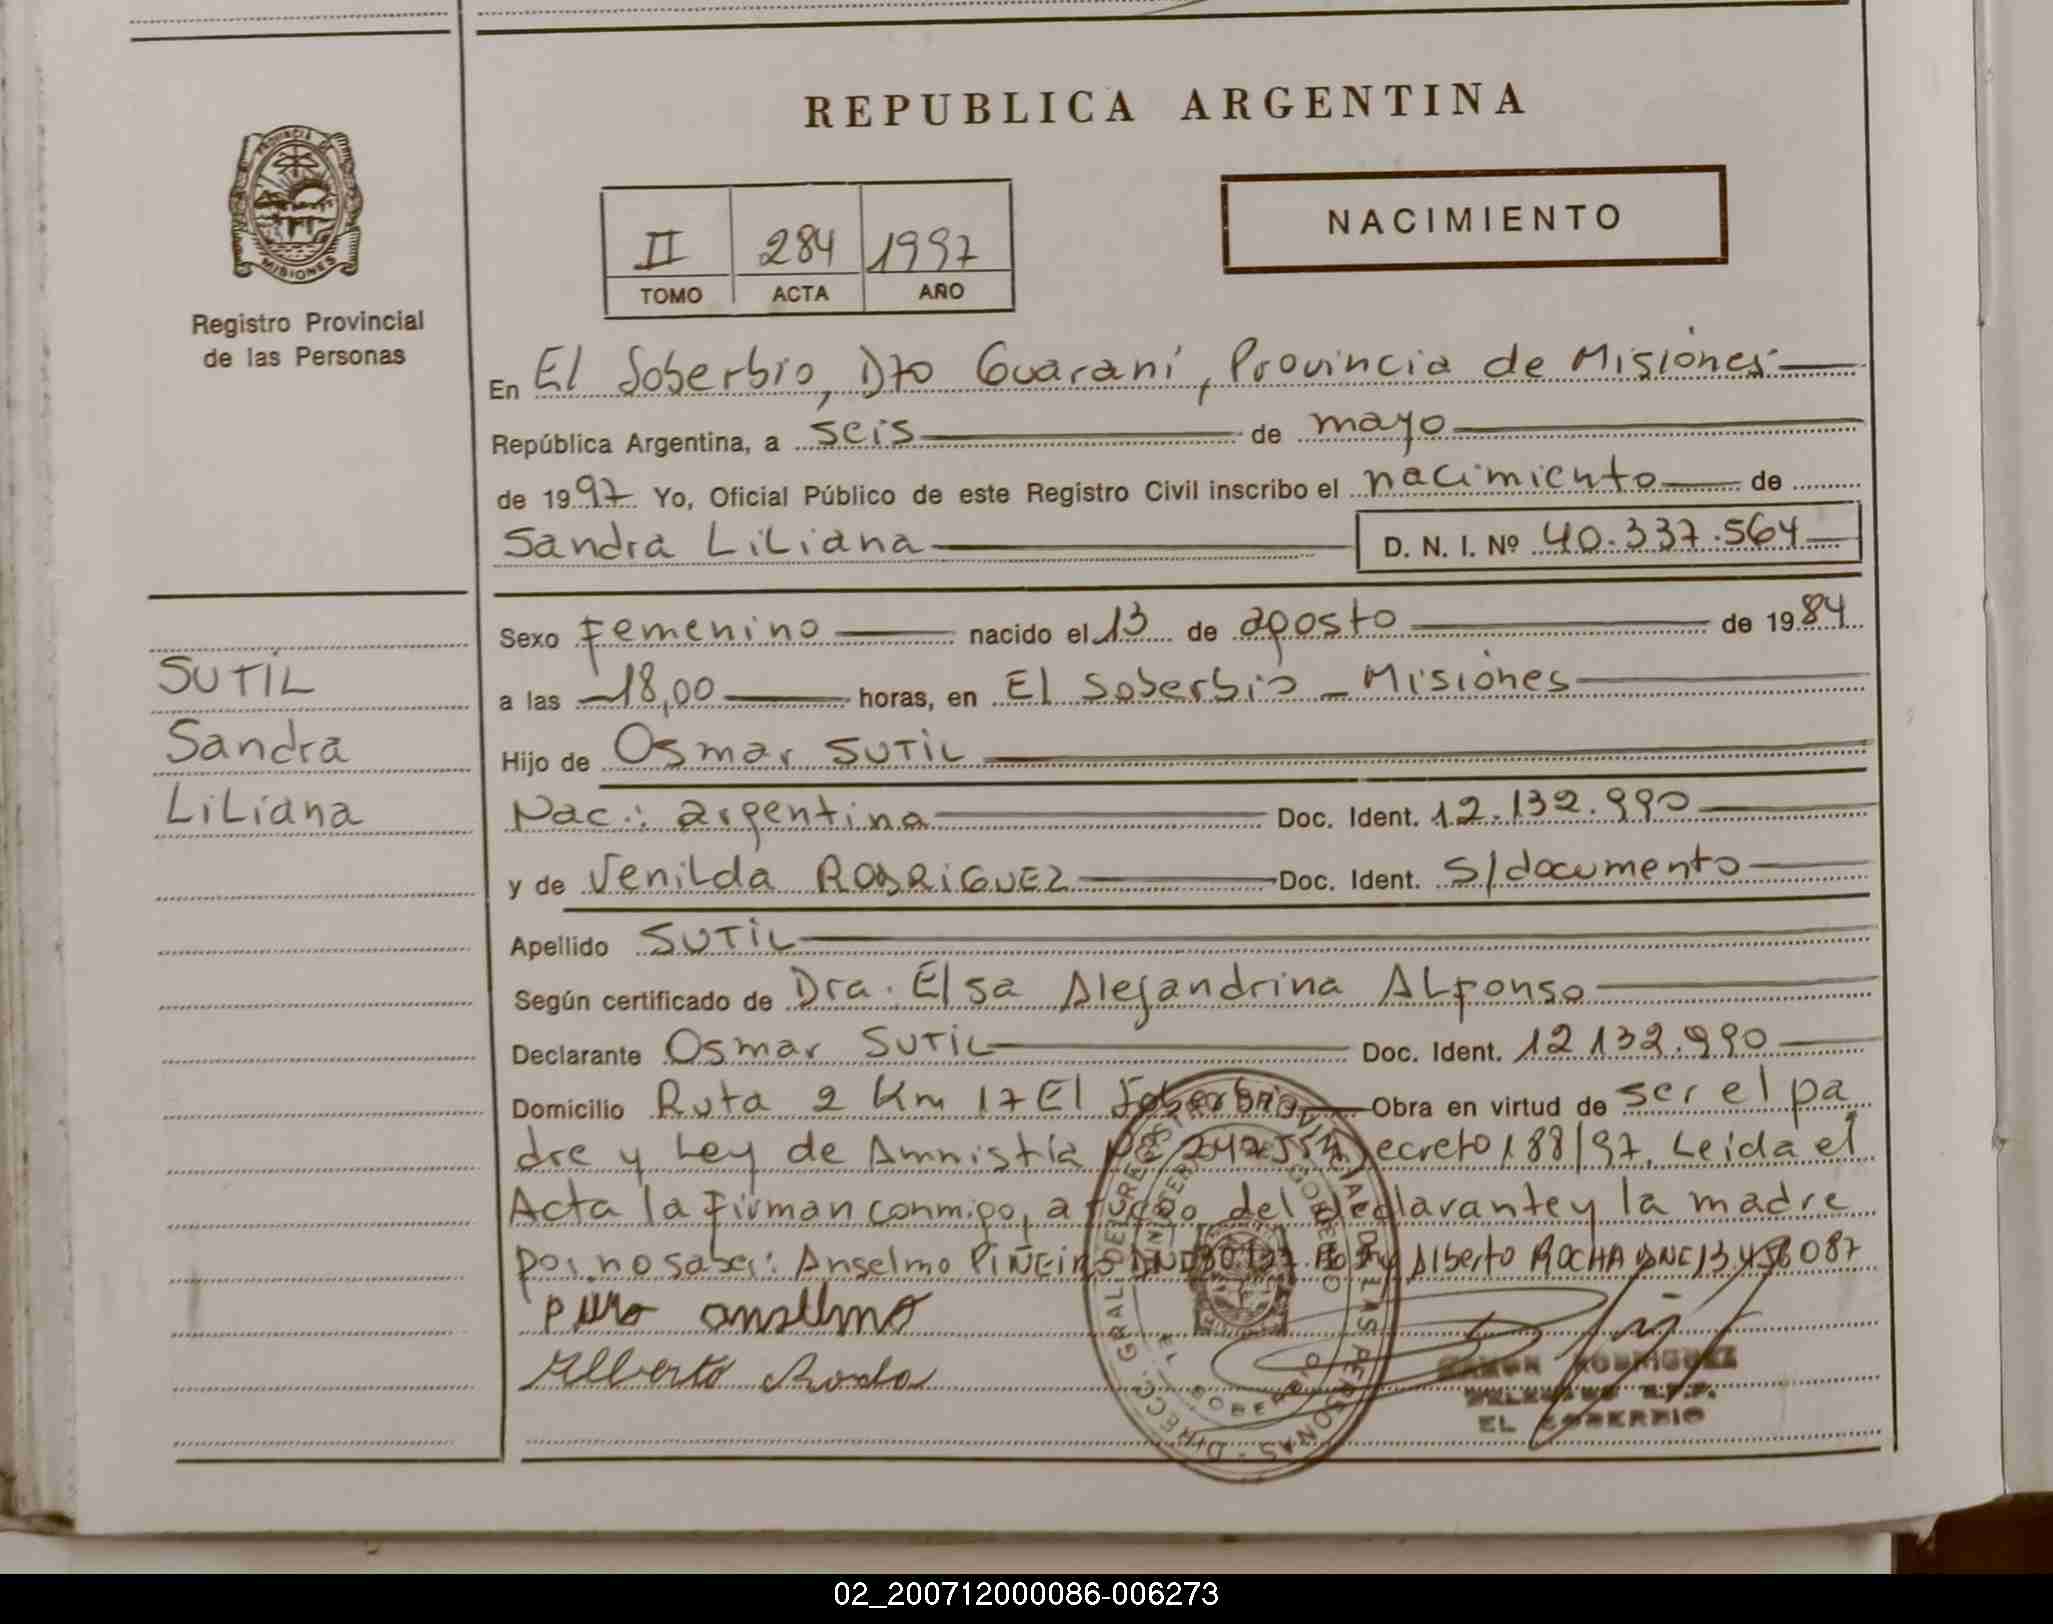 REPUBLICA ARGENTINA
PROVINCIA DE
MISIONES
Registro Provincial
de las Personas
II 284 1997
TOMO ACTA AÑO
NACIMIENTO
En El Soberbio, Dto Guaraní, Provincia de Misiones
República Argentina, a seis de mayo
de 1997 Yo, Oficial Público de este Registro Civil inscribo el nacimiento de
Sandra Liliana D. N. I. Nº 40.337.564
Sexo Femenino nacido el 13 de agosto de 1984
a las 18,00 horas, en El Soberbio - Misiones
Hijo de Osmar SUTIL
Nac.: argentina Doc. Ident. 12.132.990
y de Venilda RODRIGUEZ Doc. Ident. S/documento
Apellido SUTIL
Según certificado de Dra. Elsa Alejandrina ALFONSO
Declarante Osmar SUTIL Doc. Ident. 12.132.990
Domicilio Ruta 2 Km 17 El Soberbio Obra en virtud de ser el pa
dre y Ley de Amnistía Decreto 188/97. Leida el
Acta la firman conmigo, a ruego del declarante y la madre
por no saber: Anselmo PIÑEIRO Alberto ROCHA DNI 13.458087
anselmo
Alberto
RAMON RODRIGUEZ
EL SOBERBIO
SUTIL
Sandra
Liliana
02_200712000086-006273